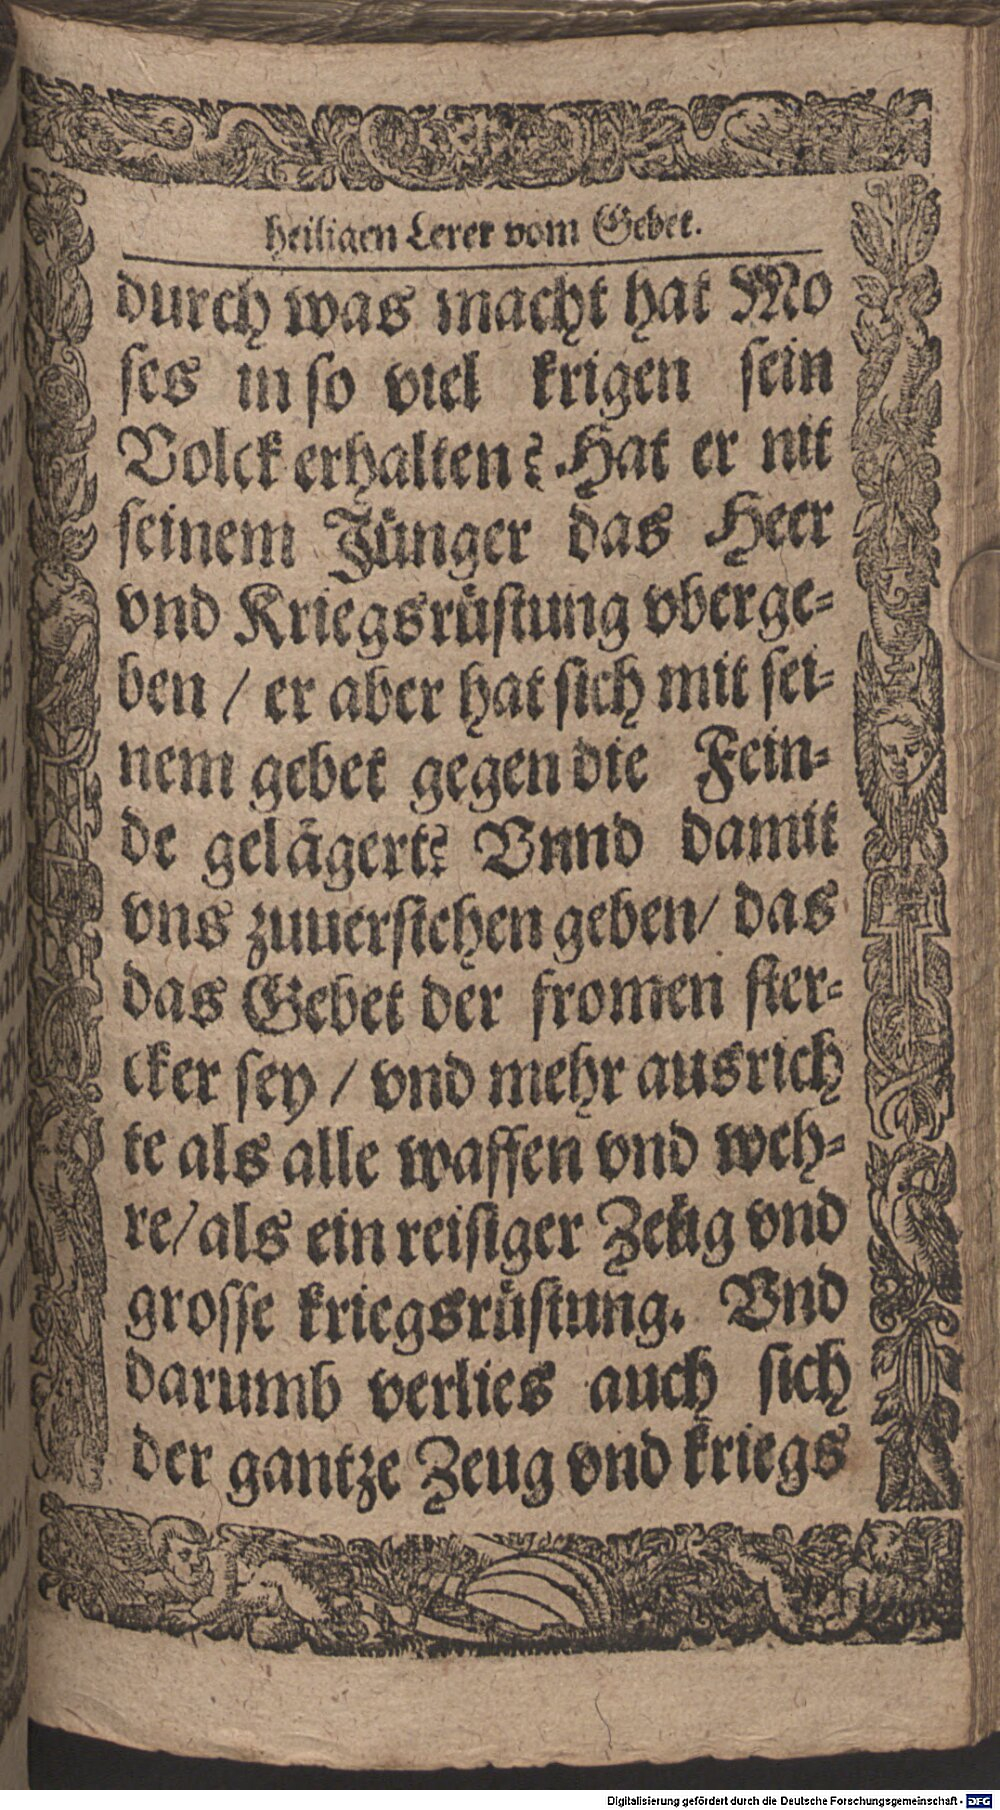 heiligen Lerer vom Gebet.
durch was macht hat Mo
ses in so viel krigen sein
Volck erhalten? Hat er nit
seinem Jünger das Heer
vnd Kriegsrüstung vberge=
ben / er aber hat sich mit sei=
nem gebet gegen die Fein=
de gelägert? Vnnd damit
vns zuuerstehen geben / das
das Gebet der fromen ster=
cker sey / vnd mehr ausrich
te als alle waffen vnd weh=
re / als ein reisiger Zeüg vnd
grosse kriegsrüstung. Vnd
darumb verlies auch sich
der gantze Zeug vnd kriegs
Digitalisierung gefördert durch die Deutsche Forschungsgemeinschaft - DFG